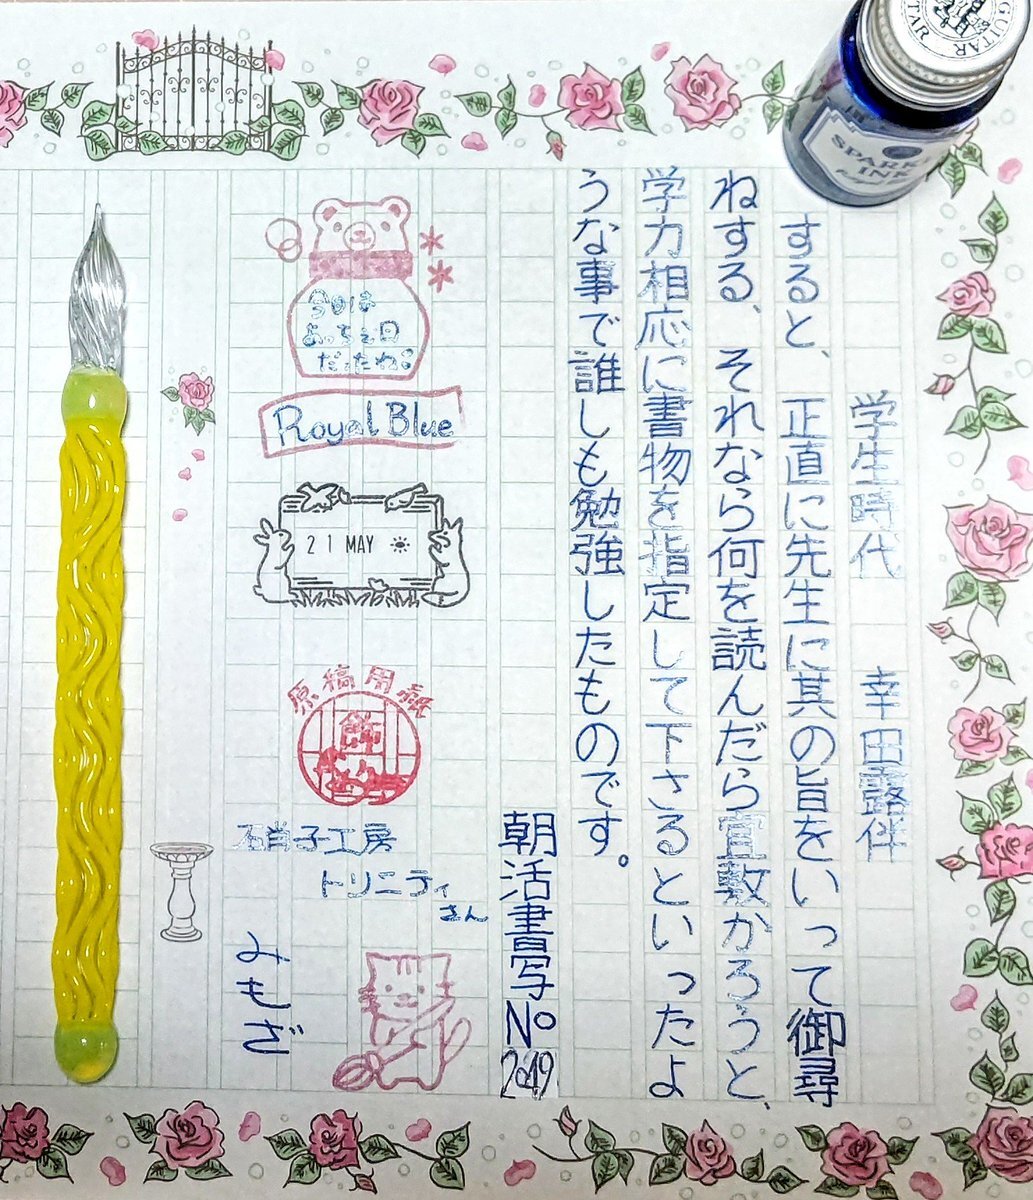 学生時代　幸田露伴
すると、正直に先生に其の旨をいって御尋
ねする、それなら何を読んだら宜敷かろうと、
学力相応に書物を指定して下さるといったよ
うな事で誰しも勉強したものです。
朝活書写No
今日は
あっちぃ日
だったね
Royal Blue
21 MAY
原稿用紙
飾
硝子工房
トリニティ
さん
みもざ
GUITAR
INK